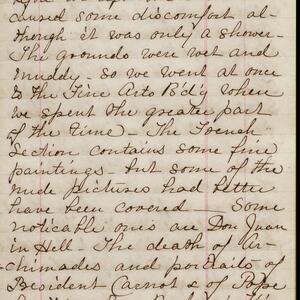 caused some discomfort al-
though it was only a shower-
The grounds were wet and
muddy - so we went at once
to the Fine Arts B'd'y where
we spent the greater part
of the time - The French
Section contains some fine
paintings - but some of the
nude pictures had better
have been covered - Some
noticable ones are Don Juan
in Hell - The death of Ar-
chimades and portraits of
President Carnot & of Pope